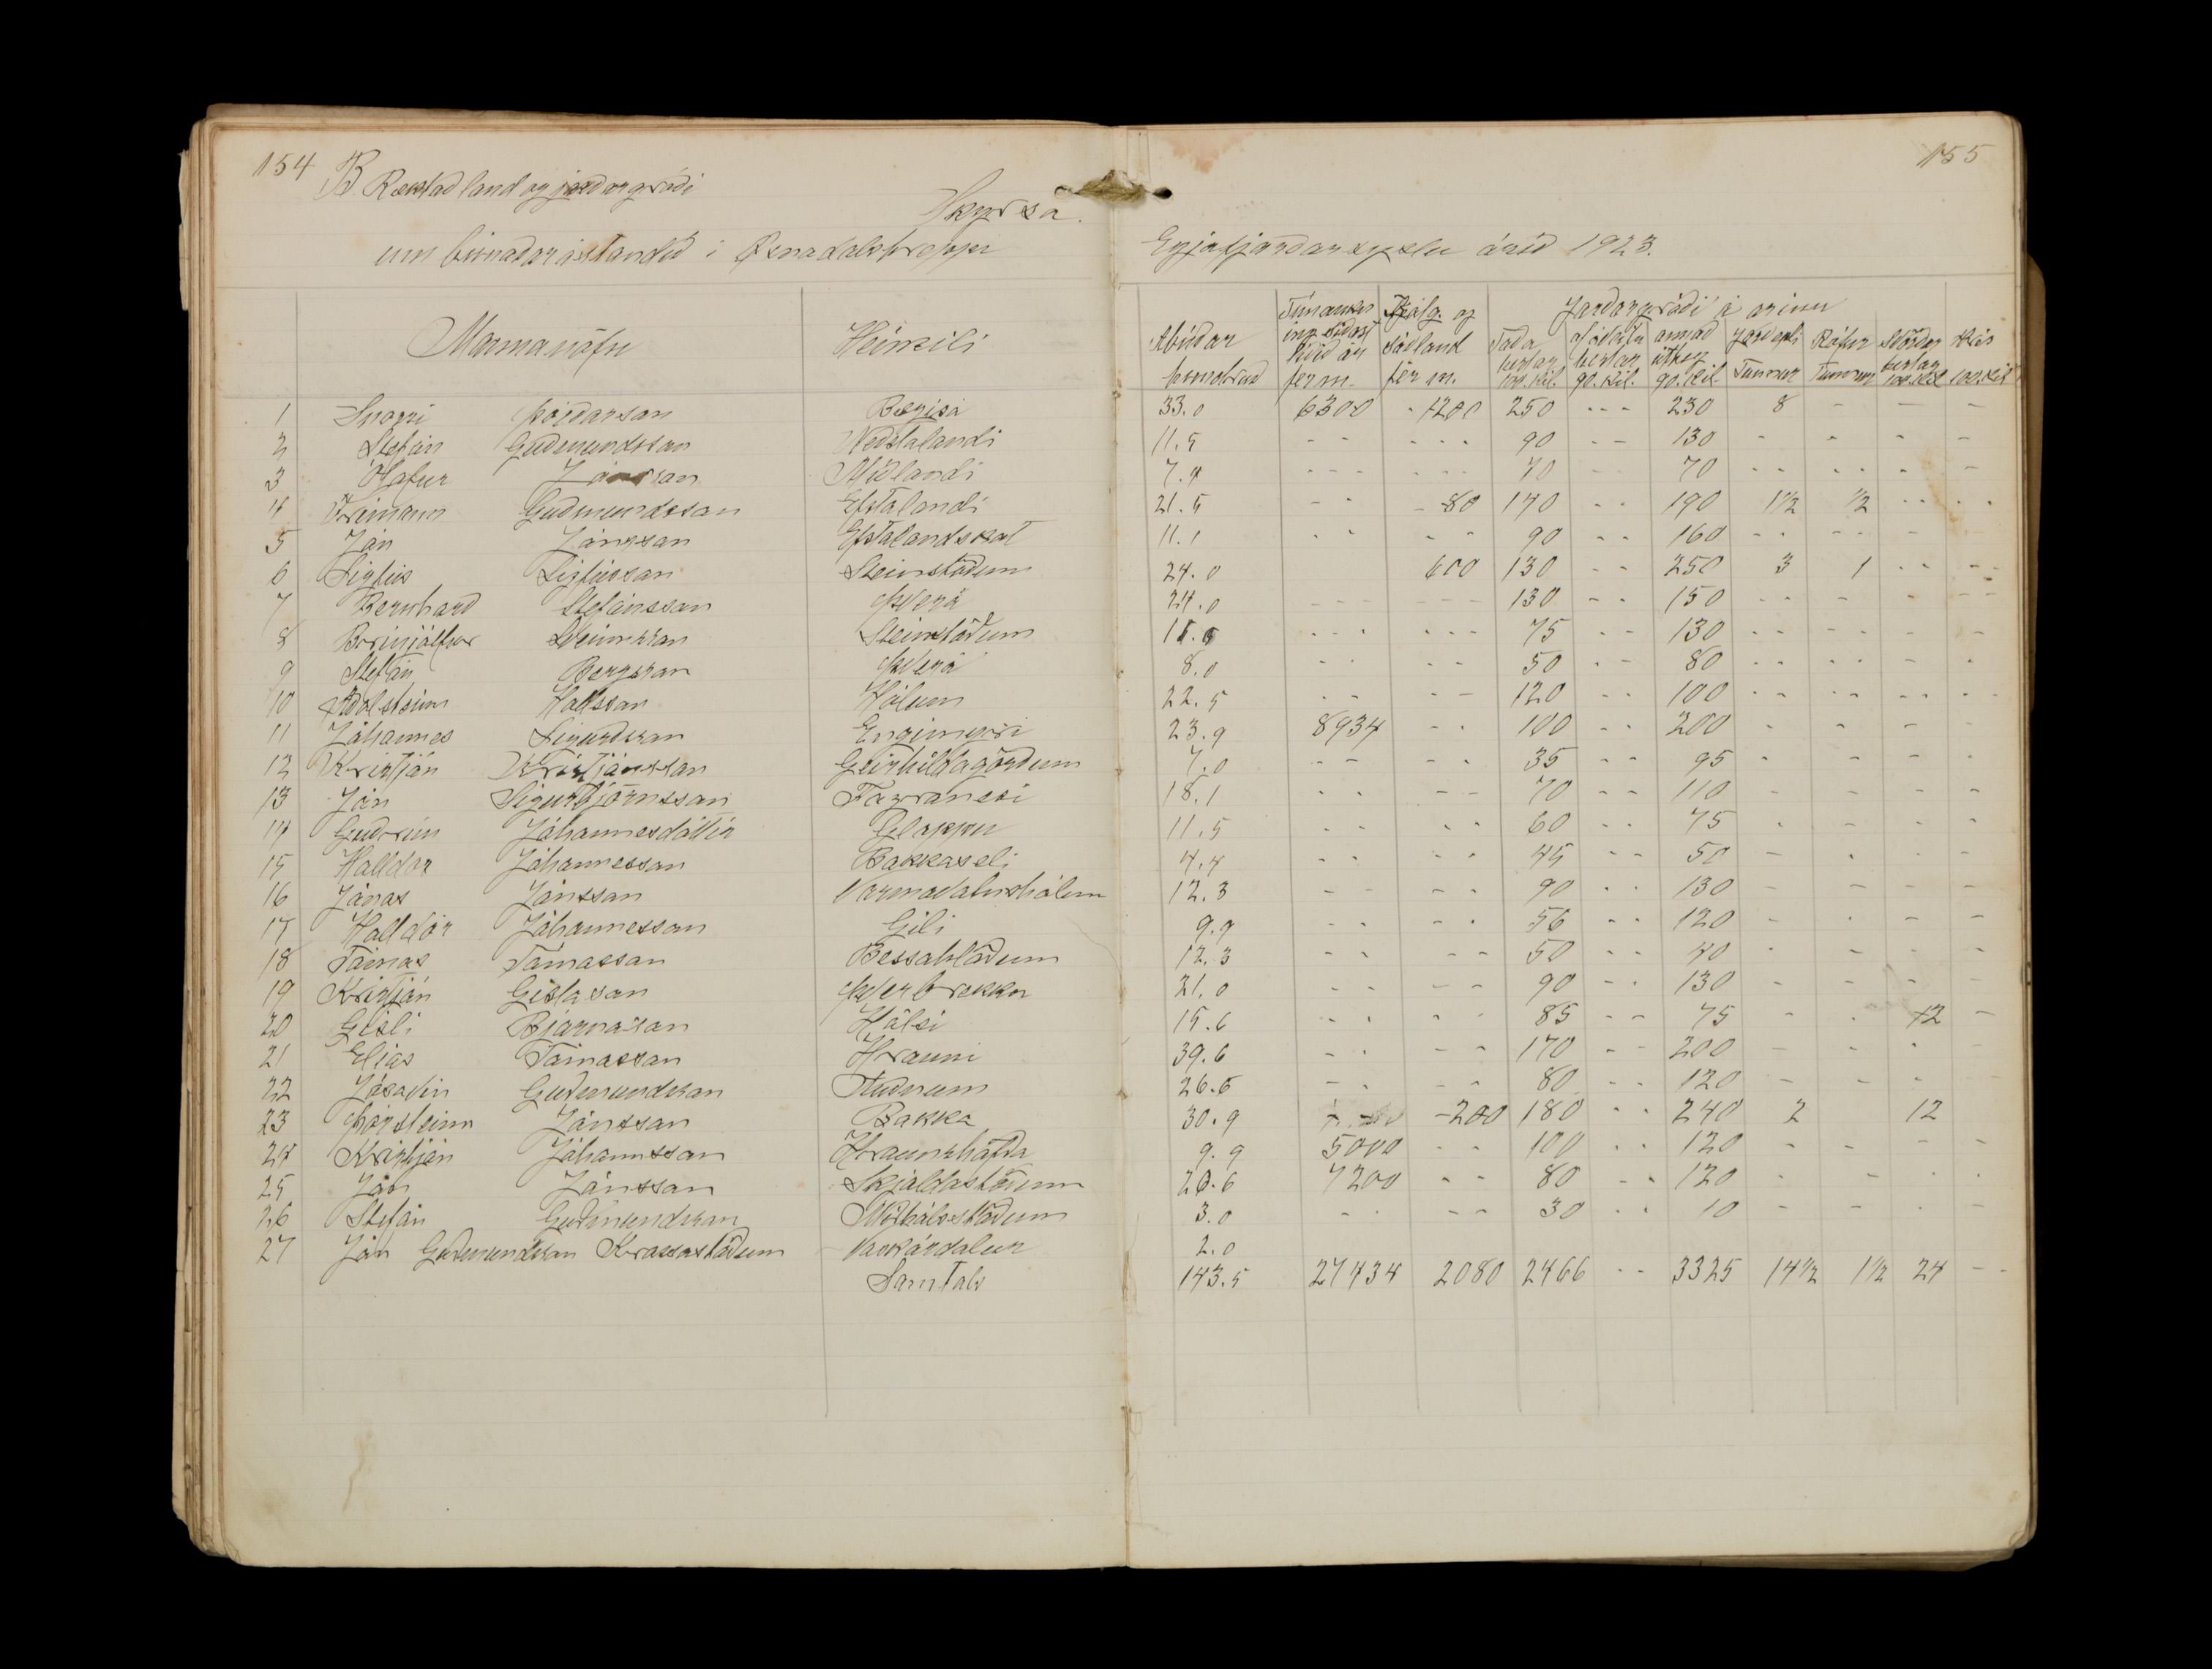 154 B Ræktad land og jardargródi 155
Skyrsa.
um búnadarástandid i Øxnadalshreppi Eyjafjardarsyslu árid 1923.
Jardargródi á arinu
Mannanöfn Heimili Ábúdar hundrud Túnaukn ing sídast lidid ár fer m. Kálg. og sádland fer m. Tada hestar 100. Kil. af sádsléttu hestar 90. Kil. annad úthey 90. Kil. Jardepli Tunnur Rófur Tunnur Stördar hestar 100. Kil Hrís 100. Kil
1 Snorri Þórdarson Bægisá 33.0 6300 - 1200 250 - - - 230 8 - - -
2 Stefán Gudmundsson Nedstalandi 11.5 - - - - - 90 - - 130 - - - -
3 Ólafur Jónsson Midlandi 7.4 - - - - - - 70 - - 70 - - - - - -
4 Frimann Gudmundsson Efstalandi 21.5 - - - 80 170 - - 190 1 1/2 1/2 - - - -
5 Jón Jónsson Efstalandskot 11.1 - - - - 90 - - 160 - - - - - -
6 Sigfús Sigfússon Steinstödum 24.0 600 130 - - 250 3 1 - - - -
7 Bernhard Stefánsson Þverá 24.0 - - - - - - 130 - - 150 - - - - - -
8 Brinjólfur Sveinsson Steinstödum 11.5 - - - - - - 75 - - 130 - - - - - -
9 Stefán Bergsson Þverá 8.0 - - - - 50 - - 80 - - - - - -
10 Adalsteinn Hallsson Hólum 22.5 - - - - 120 - - 100 - - - - - - - -
11 Jóhannes Sigurdsson Engimyri 23.9 8934 - - 100 - - 200 - - - -
12 Kristján Kristjánsson Geirhildagördum 7.0 - - - - 35 - - 95 - - - -
13 Jón Sigurbjörnsson Fagranesi 18.1 - - - - 70 - - 110 - - - -
14 Gudrún Jóhannesdóttir Gloppu 11.5 - - - - 60 - - 75 - - - -
15 Halldór Jóhannesson Bakkaseli 4.4 - - - - 45 - - 50 - - - -
16 Jónas Jónsson Varmavatnshólum 12.3 - - - - 90 - - 130 - - - -
17 Halldór Jóhannesson Gili 9.9 - - - - 56 - - 120 - - - -
18 Tómas Tómasson Bessahlödum 12.3 - - - - 50 - - 40 - - - -
19 Kristján Gislason Þverbrekku 21.0 - - - - 90 - - 130 - - - -
20 Gisli Bjarnason Hálsi 15.6 - - - - 85 - - 75 - - 12 -
21 Elias Tómasson Hrauni 39.6 - - - - 170 - - 200 - - - -
22 Jósavin Gudmundsson Audnum 26.6 - - - - 80 - - 120 - - - -
23 Þorsteinn Jónsson Bakka 30.9 - 200 180 - - 240 2 12
24 Kristján Jóhannsson Hraunshöfda 9.9 5000 - - 100 - - 120 - - - -
25 Jón Jónsson Skjaldastödum 20.6 7200 - - 80 - - 120 - - - -
26 Stefán Gudmundsson Midhálsstödum 3.0 - - - - 30 - - 10 - - - -
27 Jón Gudmundsson Krossastödum Vaskárdalur 2.0
Samtals 143.5 27434 2080 2466 - - 3325 14 1/2 1 1/2 24 - -